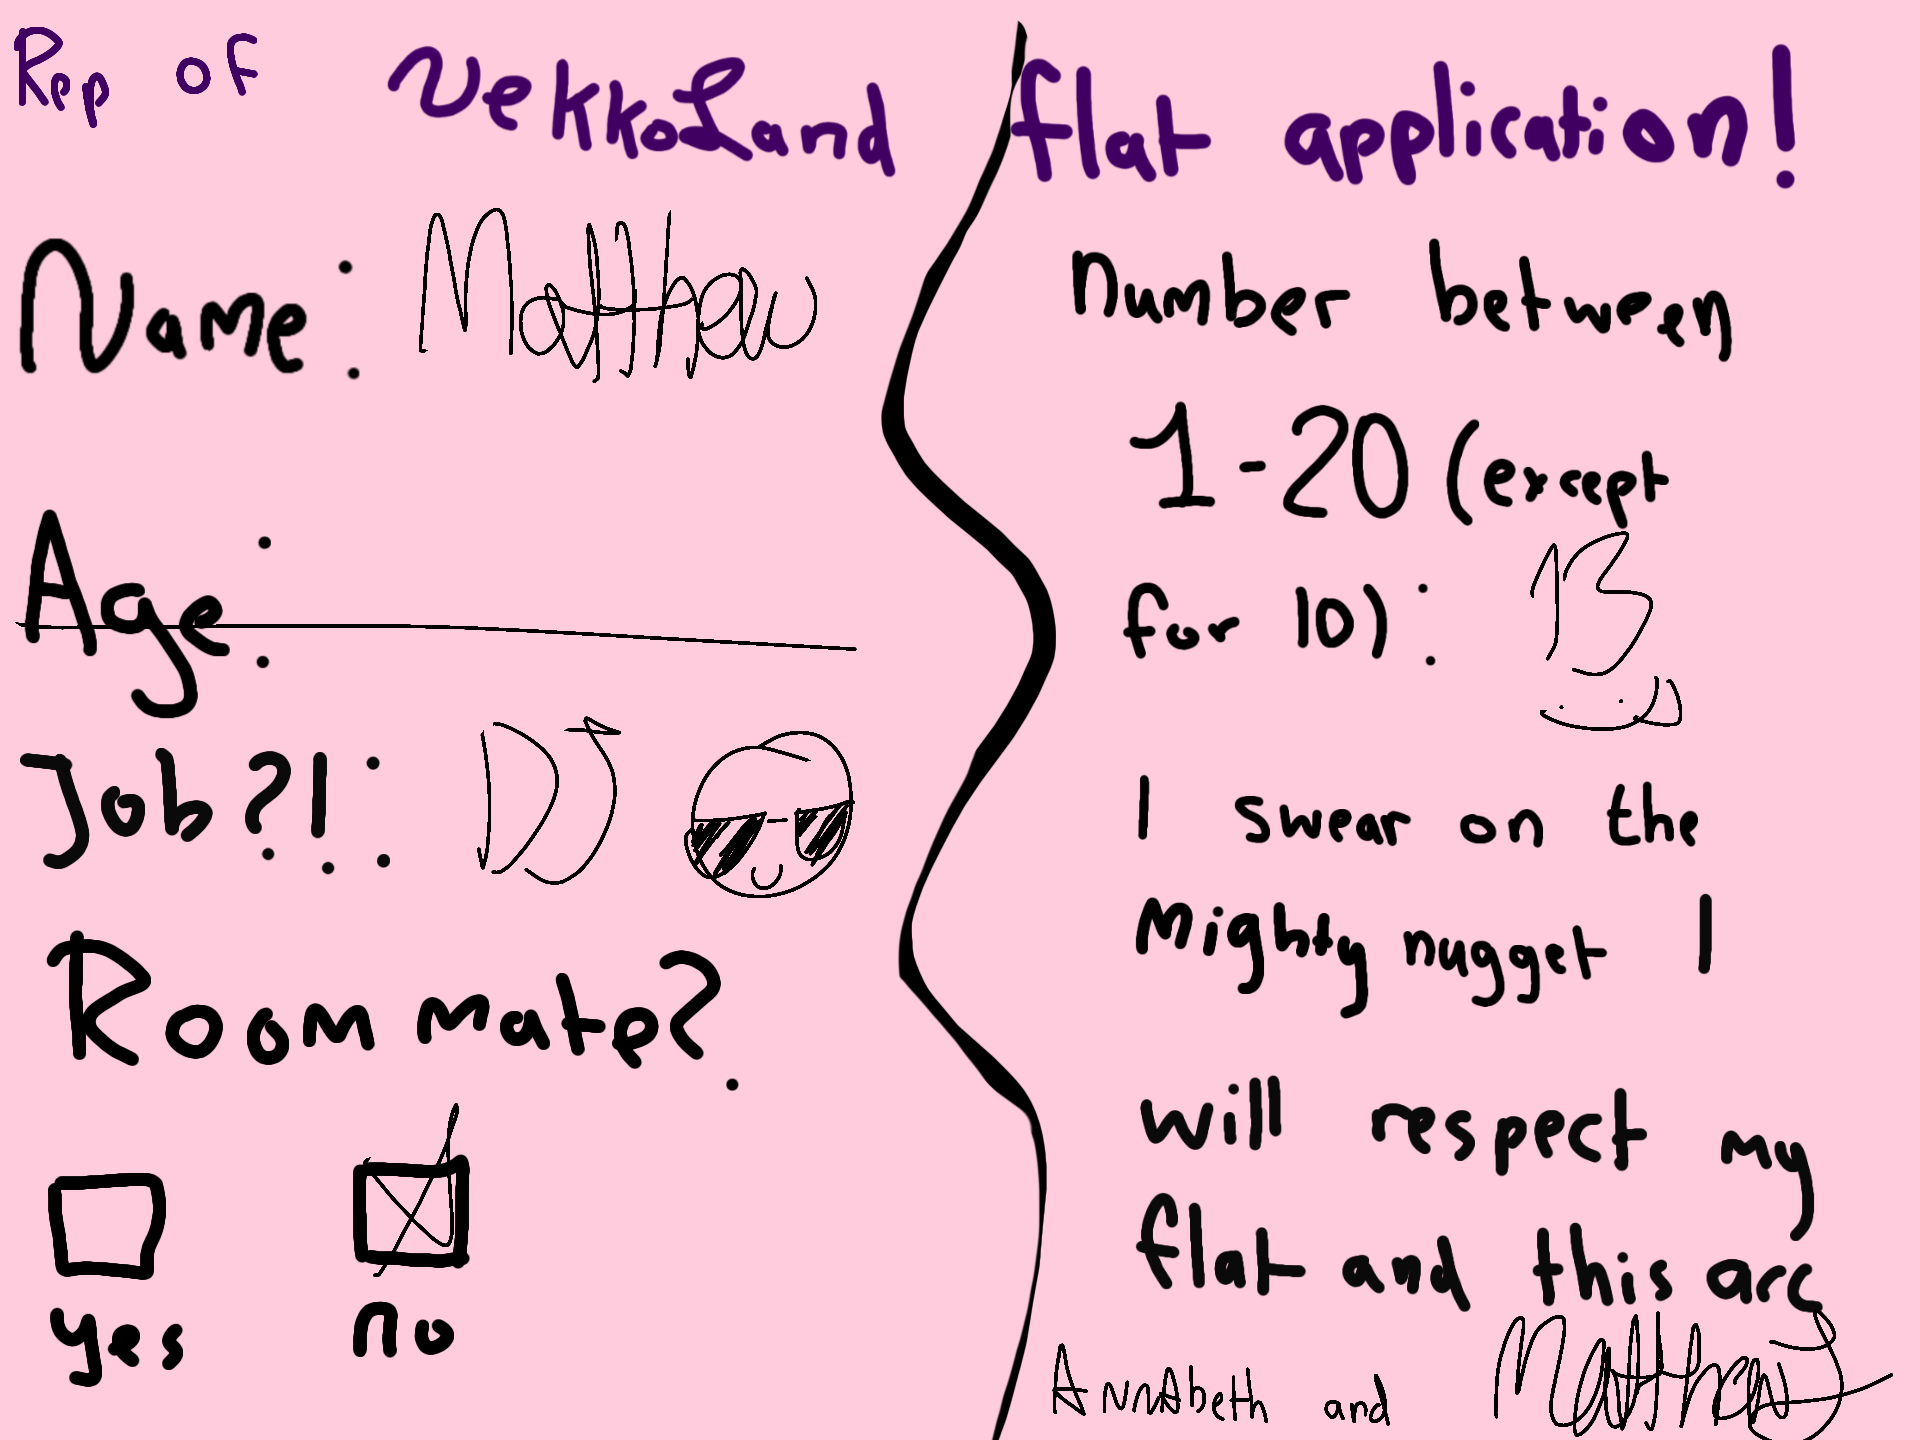 Rep of NekkoLand
Name: Matthew
Age:
Job?!: DJ
Room mate?
yes no
flat application!
number between
1-20 (except
for 10): 13
I swear on the
Mighty nugget I
will respect my
flat and this arc
Annabeth and Matthew